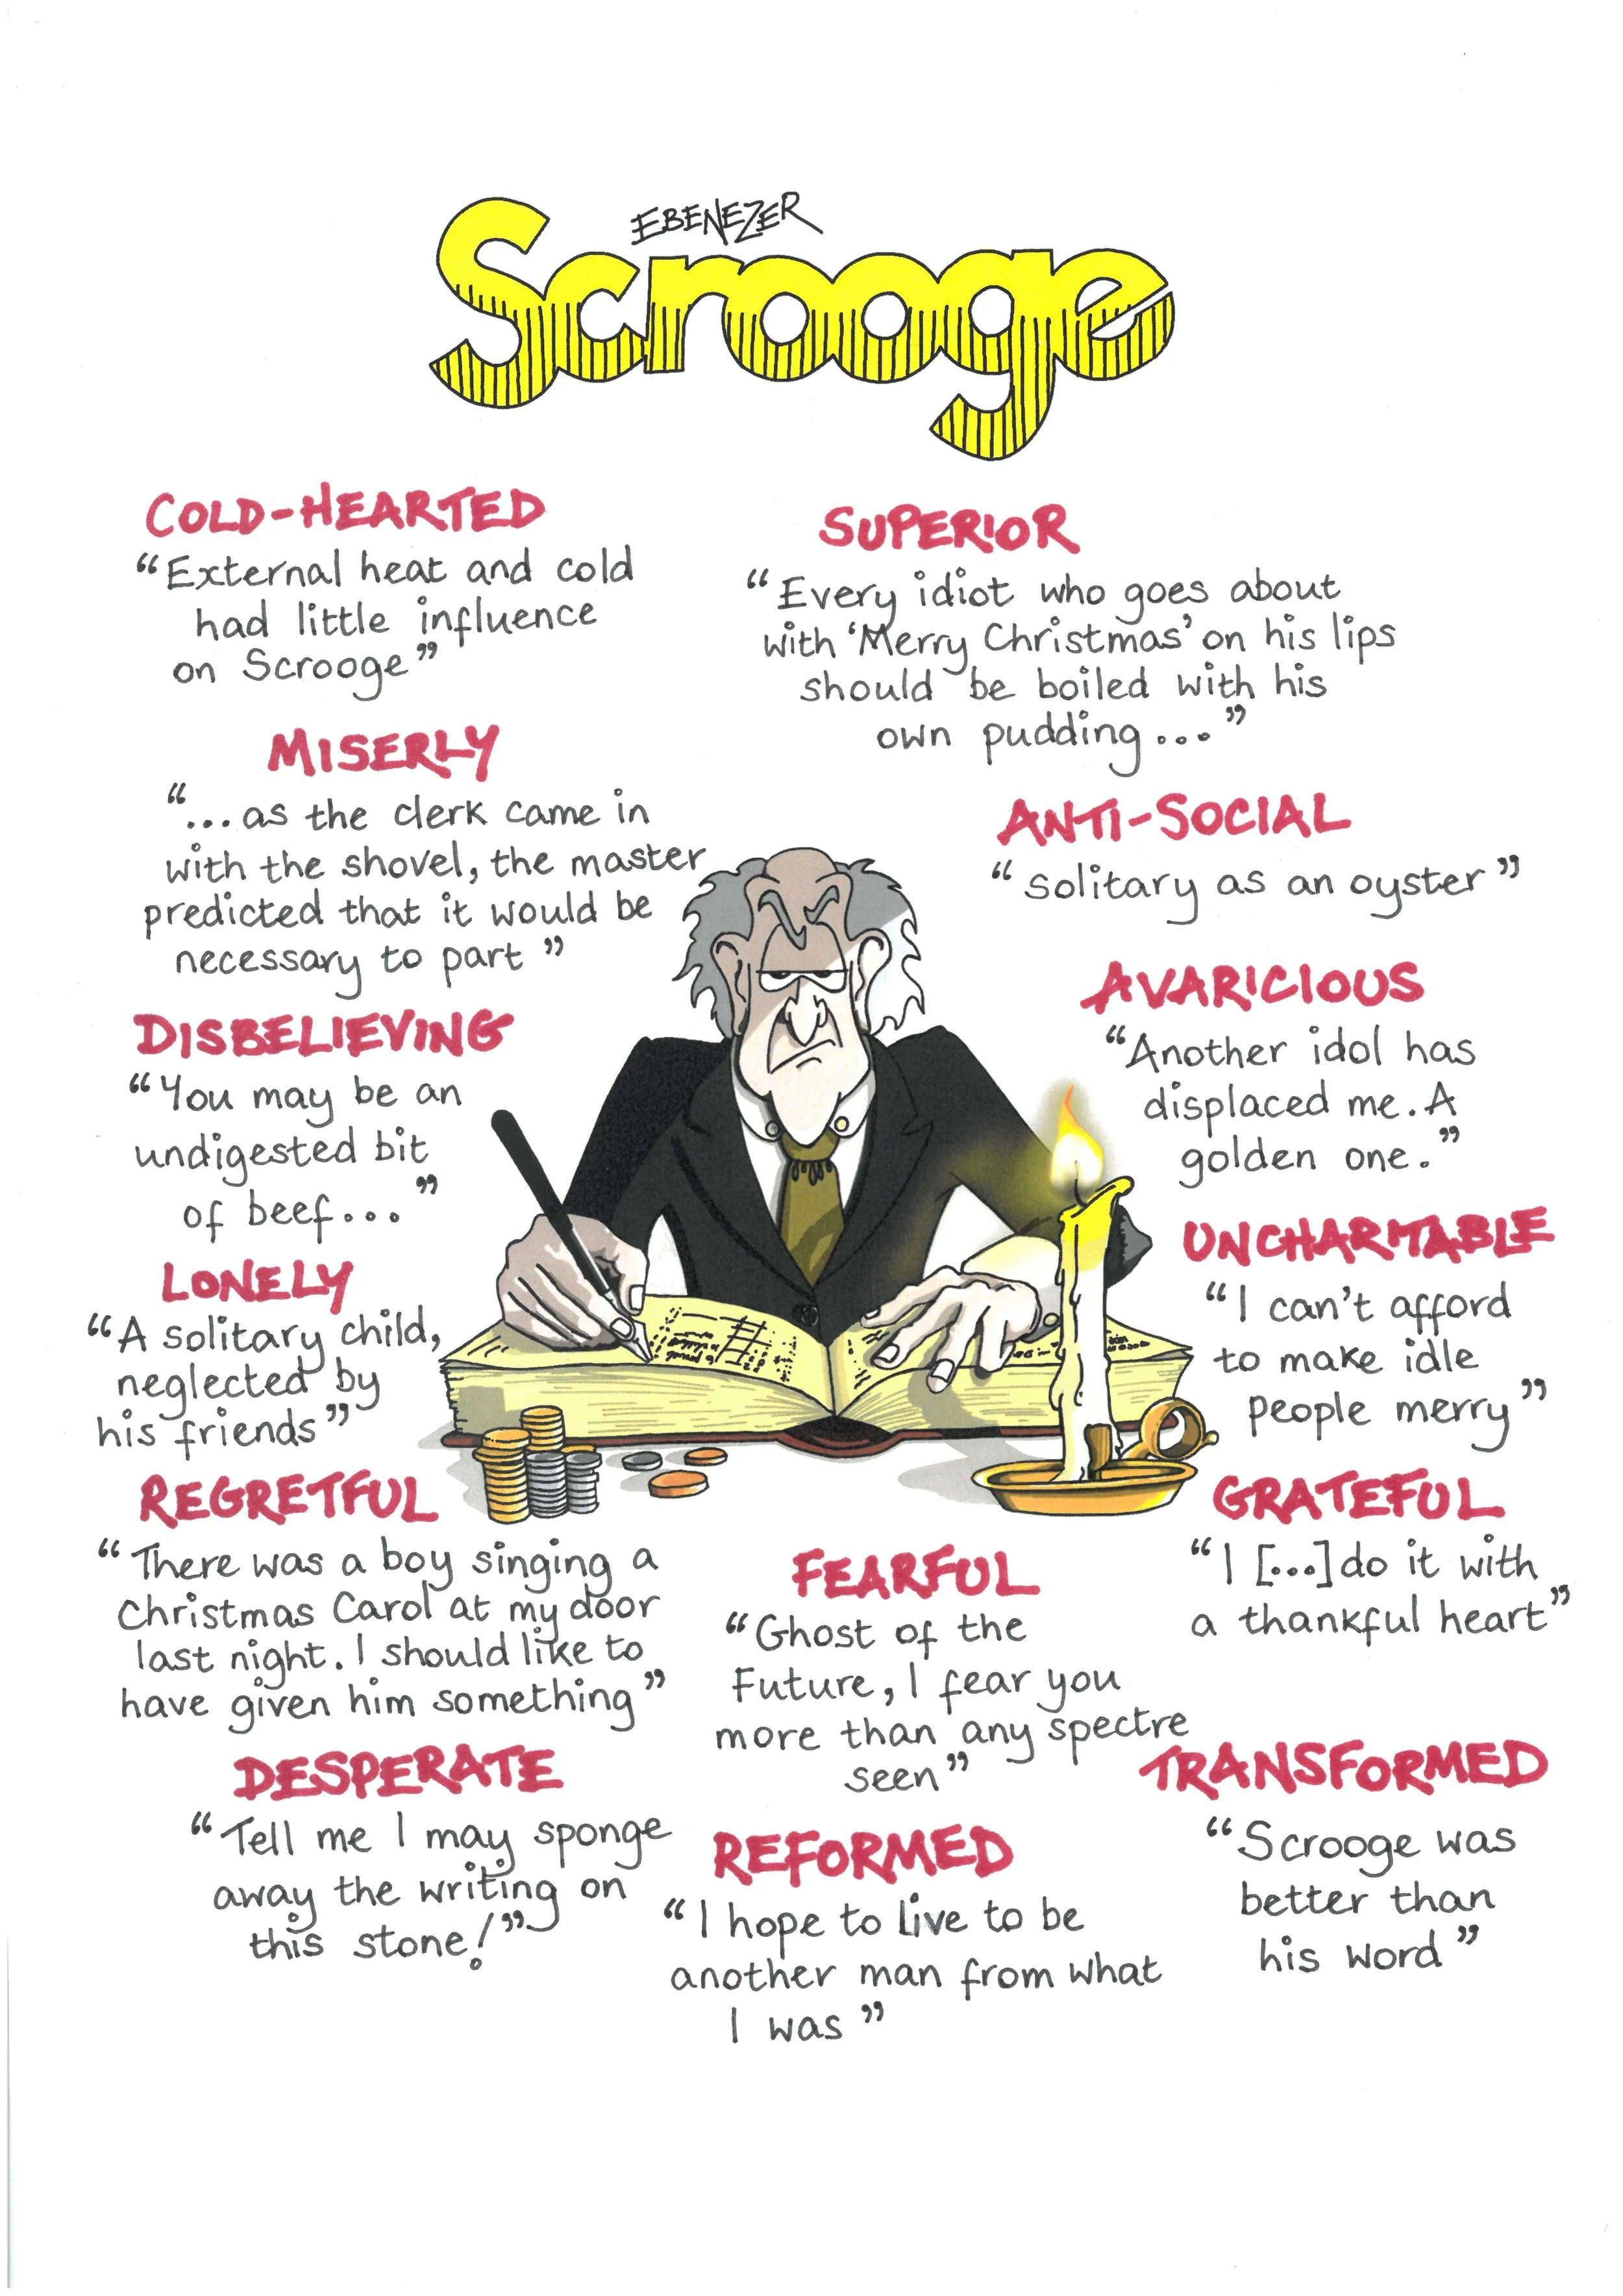 EBENEZER
Scrooge
COLD-HEARTED
“External heat and cold
had little influence
on Scrooge”
SUPERIOR
“Every idiot who goes about
with ‘Merry Christmas’ on his lips
should be boiled with his
own pudding...”
MISERLY
“...as the clerk came in
with the shovel, the master
predicted that it would be
necessary to part”
ANTI-SOCIAL
“solitary as an oyster”
AVARICIOUS
“Another idol has
displaced me. A
golden one.”
DISBELIEVING
“You may be an
undigested bit
of beef...”
UNCHARITABLE
“I can’t afford
to make idle
people merry”
LONELY
“A solitary child,
neglected by
his friends”
REGRETFUL
“There was a boy singing a
Christmas Carol at my door
last night. I should like to
have given him something”
GRATEFUL
“I [...] do it with
a thankful heart”
FEARFUL
“Ghost of the
Future, I fear you
more than any spectre
seen”
DESPERATE
“Tell me I may sponge
away the writing on
this stone!”
REFORMED
“I hope to live to be
another man from what
I was”
TRANSFORMED
“Scrooge was
better than
his word”